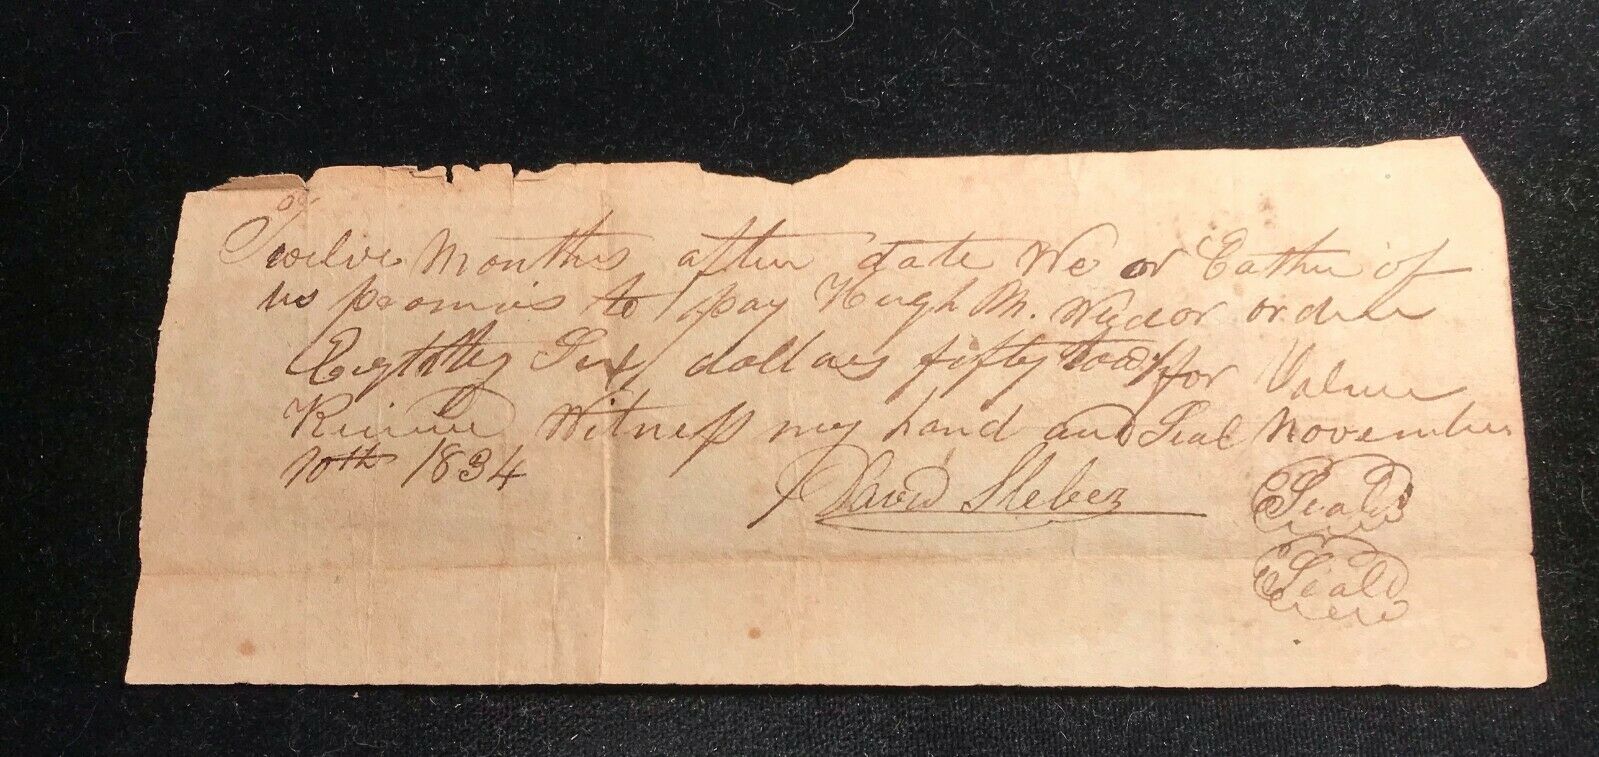 Twelve Months after date We or Eather of
us promis to pay Hugh M. order
Eightey Six dollars fifty for Value
Witness my hand and Seal November
10th 1834
David Sleber
Seal
Seal